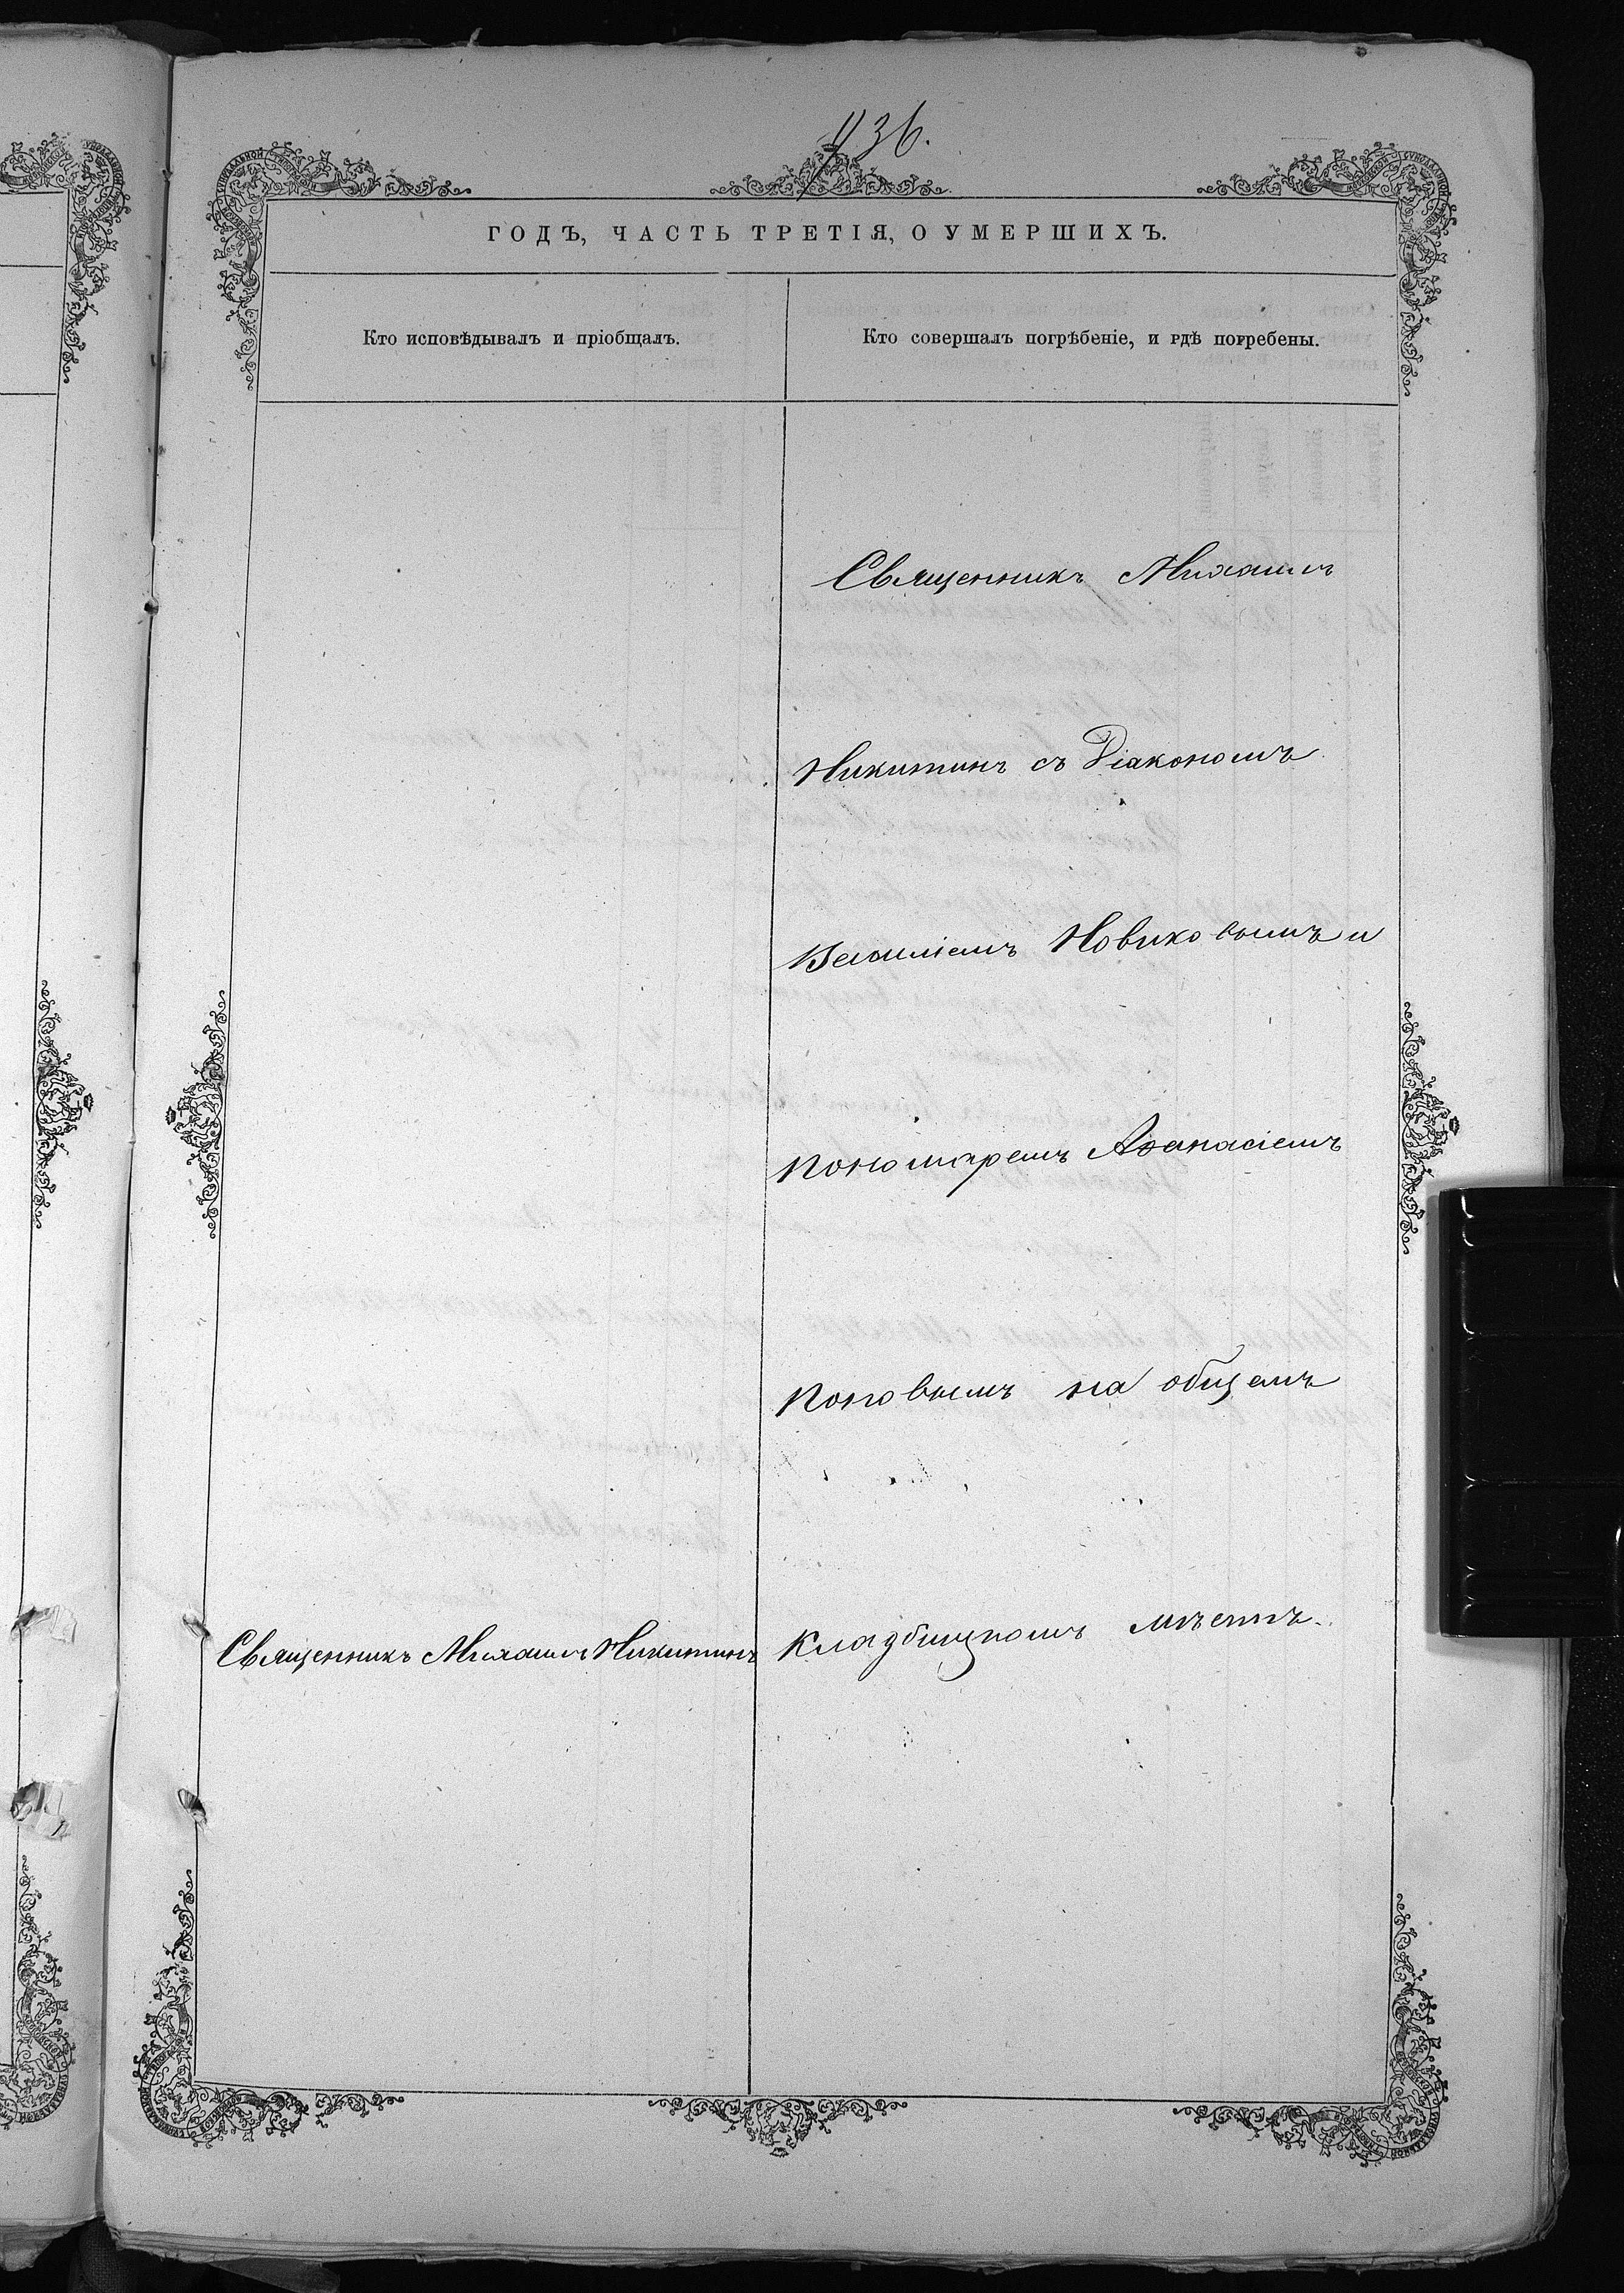 936.
ГОДЪ, ЧАСТЬ ТРЕТІЯ, О УМЕРШИХЪ.
Кто исповѣдывалъ и пріобщалъ.
Кто совершалъ погрѣбеніе, и гдѣ погребены.
Священникъ Михаилъ
Никитинъ съ Діакономъ
Василіемъ Новиковымъ и
пономаремъ Аѳанасіемъ
Поповымъ на общемъ
Священникъ Михаилъ Никитинъ
кладбищномъ мѣстѣ.